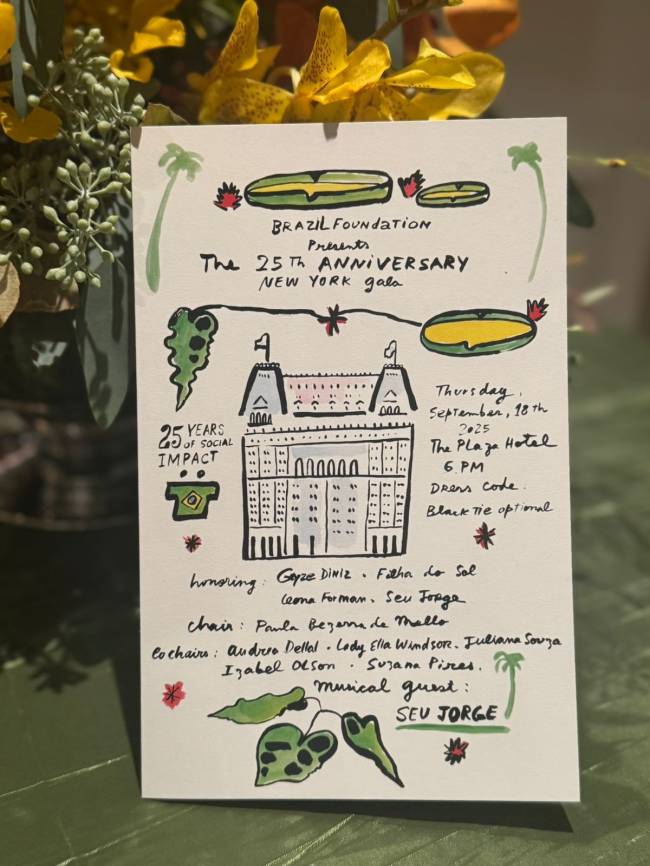 BRAZIL FOUNDATION
Presents
The 25Th ANNIVERSARY
NEW YORK gala
Thursday,
September, 18th
2025
The Plaza Hotel
6 PM
Dress Code:
Black Tie optional
25 YEARS
OF SOCIAL
IMPACT
honoring: Geyze Diniz . Filha do Sol
Leona Forman. Seu Jorge
Chair: Paula Bezerra de Mello
Co chairs: Andrea Dellal . Lady Ella Windsor. Juliana Souza
Izabel Olson . Suzana Pires.
musical guest:
SEU JORGE